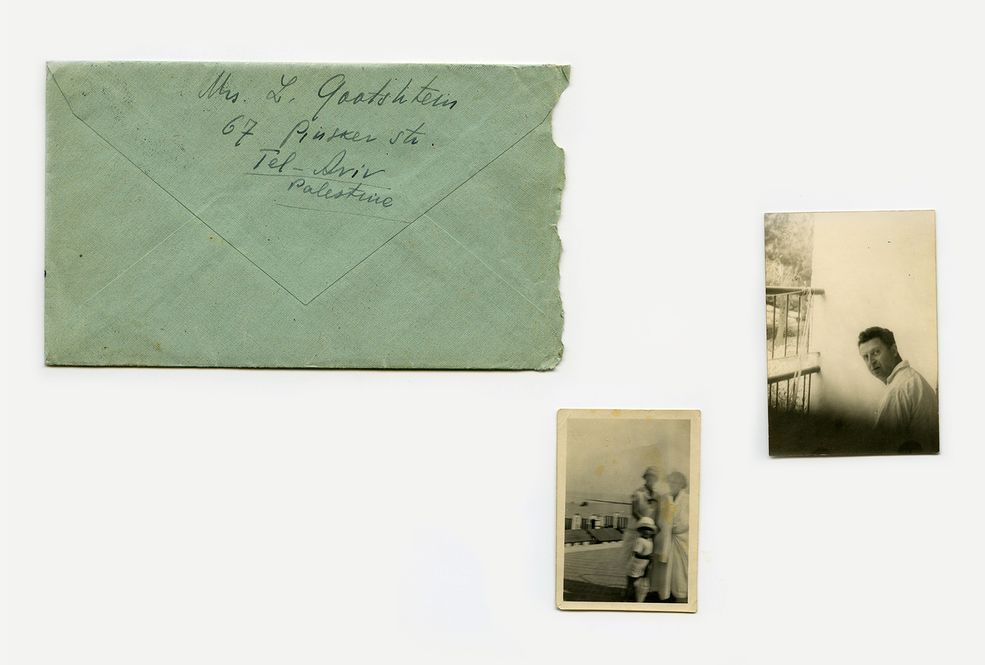 Mrs. L. Gootshtein
67 Pinsker str.
Tel-Aviv
Palestine